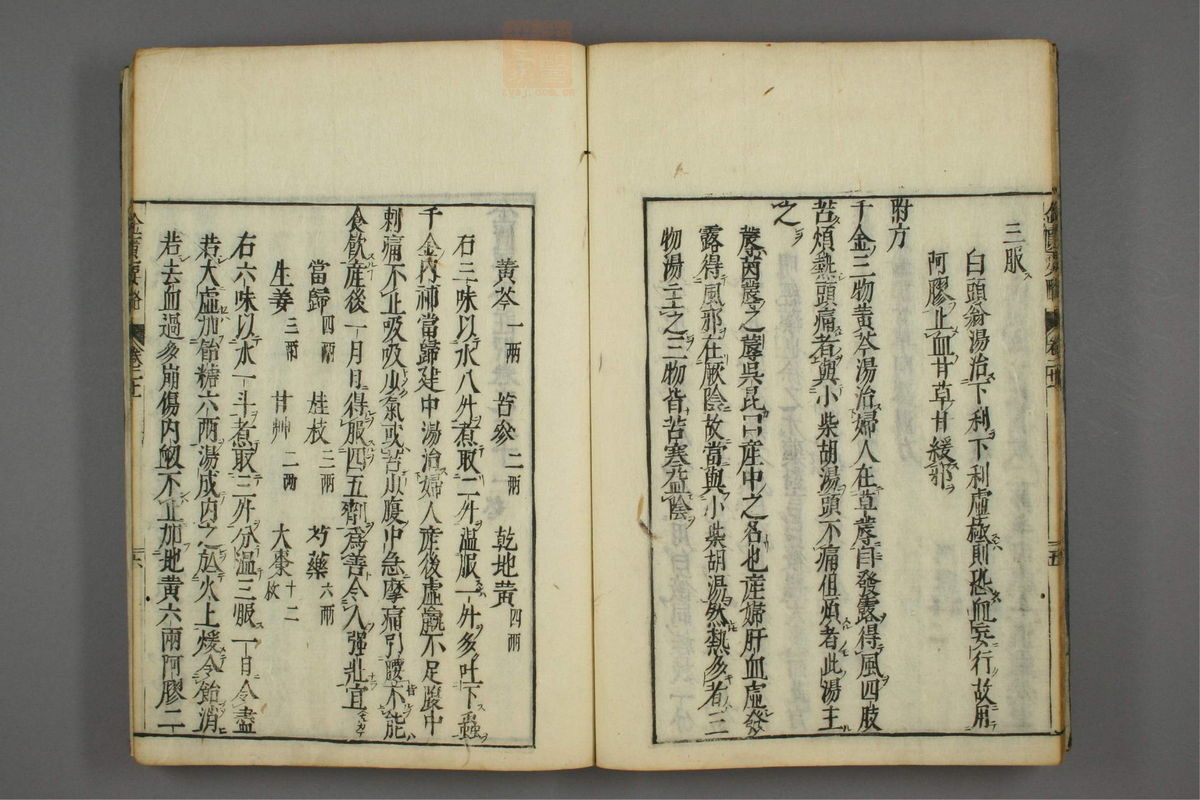 三服
白頭翁湯治下利下利虛極則恐血妄行故用
阿膠止血甘草甘緩邪
附方
千金三物黃芩湯治婦人在草蓐自發露得風四肢
苦煩熱頭痛者與小柴胡湯頭不痛但煩者此湯主
之
蓐茵蓐之蓐吳昆曰產中之名也產婦肝血虛發
露得風邪在厥陰故當與小柴胡湯然熱多者三
物湯主之三物皆苦寒益陰
五
黃芩一兩 苦參二兩 乾地黃四兩
右三味以水八升煮取二升温服一升多吐下蟲
千金內補當歸建中湯治婦人產後虛羸不足腹中
刺痛不止吸吸少氣或苦少腹中急摩痛引腰不能
食飲產後一月日得服四五劑為善令人强壯宜
當歸四兩 桂枝三兩 芍藥六兩
生姜三兩 甘艸二兩 大棗十二枚
右六味以水一斗煮取三升分温三服一日令盡
若大虛加飴糖六兩湯成內之於火上煖令飴消
若去血過多崩傷內衂不止加地黃六兩阿膠二
金匱要略